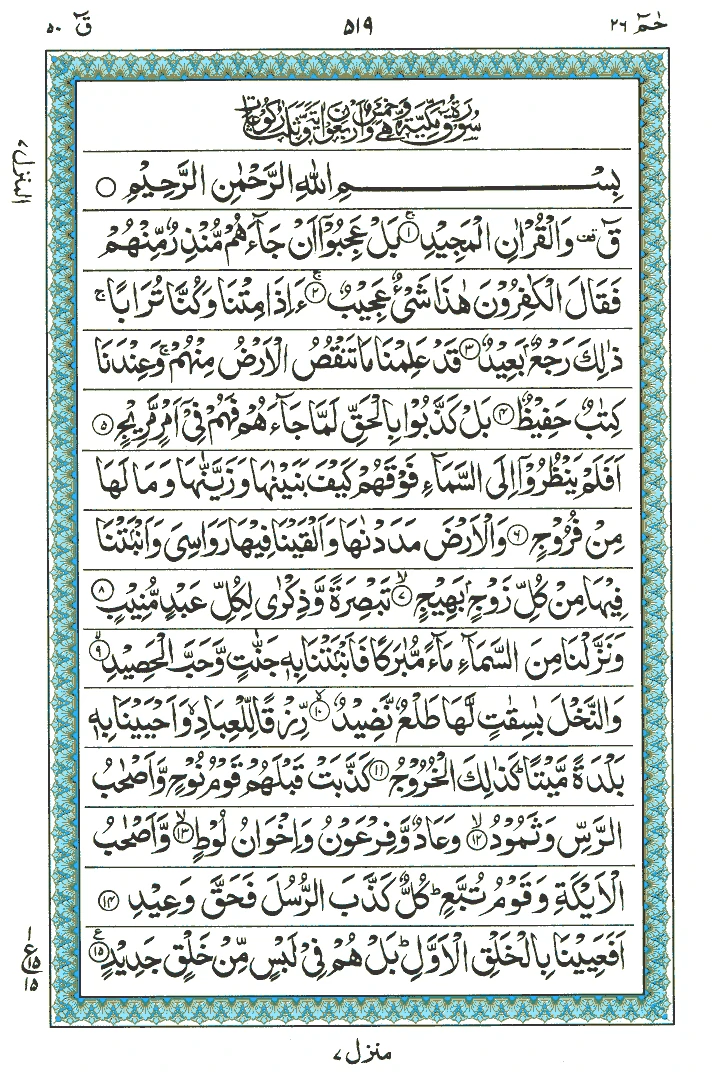 حٰمٓ ٢٦ ٥١٩ قٓ ٥٠
سُوْرَةُ قٓ مَكِّيَّةٌ وَّهِيَ خَمْسٌ وَّاَرْبَعُوْنَ اٰيَةً وَّثَلٰثُ رُكُوْعَاتٍ
بِسْمِ اللّٰهِ الرَّحْمٰنِ الرَّحِيْمِ ○
قٓ ۚ وَالْقُرْاٰنِ الْمَجِيْدِ ۚ﴿١﴾ بَلْ عَجِبُوْۤا اَنْ جَآءَهُمْ مُّنْذِرٌ مِّنْهُمْ
فَقَالَ الْكٰفِرُوْنَ هٰذَا شَيْءٌ عَجِيْبٌ ۚ﴿٢﴾ ءَاِذَا مِتْنَا وَكُنَّا تُرَابًا ۚ
ذٰلِكَ رَجْعٌۢ بَعِيْدٌ ﴿٣﴾ قَدْ عَلِمْنَا مَا تَنْقُصُ الْاَرْضُ مِنْهُمْ ۚ وَعِنْدَنَا
كِتٰبٌ حَفِيْظٌ ﴿٤﴾ بَلْ كَذَّبُوْا بِالْحَقِّ لَمَّا جَآءَهُمْ فَهُمْ فِيْۤ اَمْرٍ مَّرِيْجٍ ﴿٥﴾
اَفَلَمْ يَنْظُرُوْۤا اِلَى السَّمَآءِ فَوْقَهُمْ كَيْفَ بَنَيْنٰهَا وَزَيَّنّٰهَا وَمَا لَهَا
مِنْ فُرُوْجٍ ﴿٦﴾ وَالْاَرْضَ مَدَدْنٰهَا وَاَلْقَيْنَا فِيْهَا رَوَاسِيَ وَاَنْۢبَتْنَا
فِيْهَا مِنْ كُلِّ زَوْجٍۭ بَهِيْجٍ ۙ﴿٧﴾ تَبْصِرَةً وَّذِكْرٰى لِكُلِّ عَبْدٍ مُّنِيْبٍ ﴿٨﴾
وَنَزَّلْنَا مِنَ السَّمَآءِ مَآءً مُّبٰرَكًا فَاَنْۢبَتْنَا بِهٖ جَنّٰتٍ وَّحَبَّ الْحَصِيْدِ ۙ﴿٩﴾
وَالنَّخْلَ بٰسِقٰتٍ لَّهَا طَلْعٌ نَّضِيْدٌ ۙ﴿١٠﴾ رِّزْقًا لِّلْعِبَادِ ۙ وَاَحْيَيْنَا بِهٖ
بَلْدَةً مَّيْتًا ؕ كَذٰلِكَ الْخُرُوْجُ ﴿١١﴾ كَذَّبَتْ قَبْلَهُمْ قَوْمُ نُوْحٍ وَّاَصْحٰبُ
الرَّسِّ وَثَمُوْدُ ۙ﴿١٢﴾ وَعَادٌ وَّفِرْعَوْنُ وَاِخْوَانُ لُوْطٍ ۙ﴿١٣﴾ وَّاَصْحٰبُ
الْاَيْكَةِ وَقَوْمُ تُبَّعٍ ؕ كُلٌّ كَذَّبَ الرُّسُلَ فَحَقَّ وَعِيْدِ ﴿١٤﴾
اَفَعَيِيْنَا بِالْخَلْقِ الْاَوَّلِ ؕ بَلْ هُمْ فِيْ لَبْسٍ مِّنْ خَلْقٍ جَدِيْدٍ ۧ﴿١٥﴾
المنزل ٧
١
ع ١٥
١٥
منزل ٧